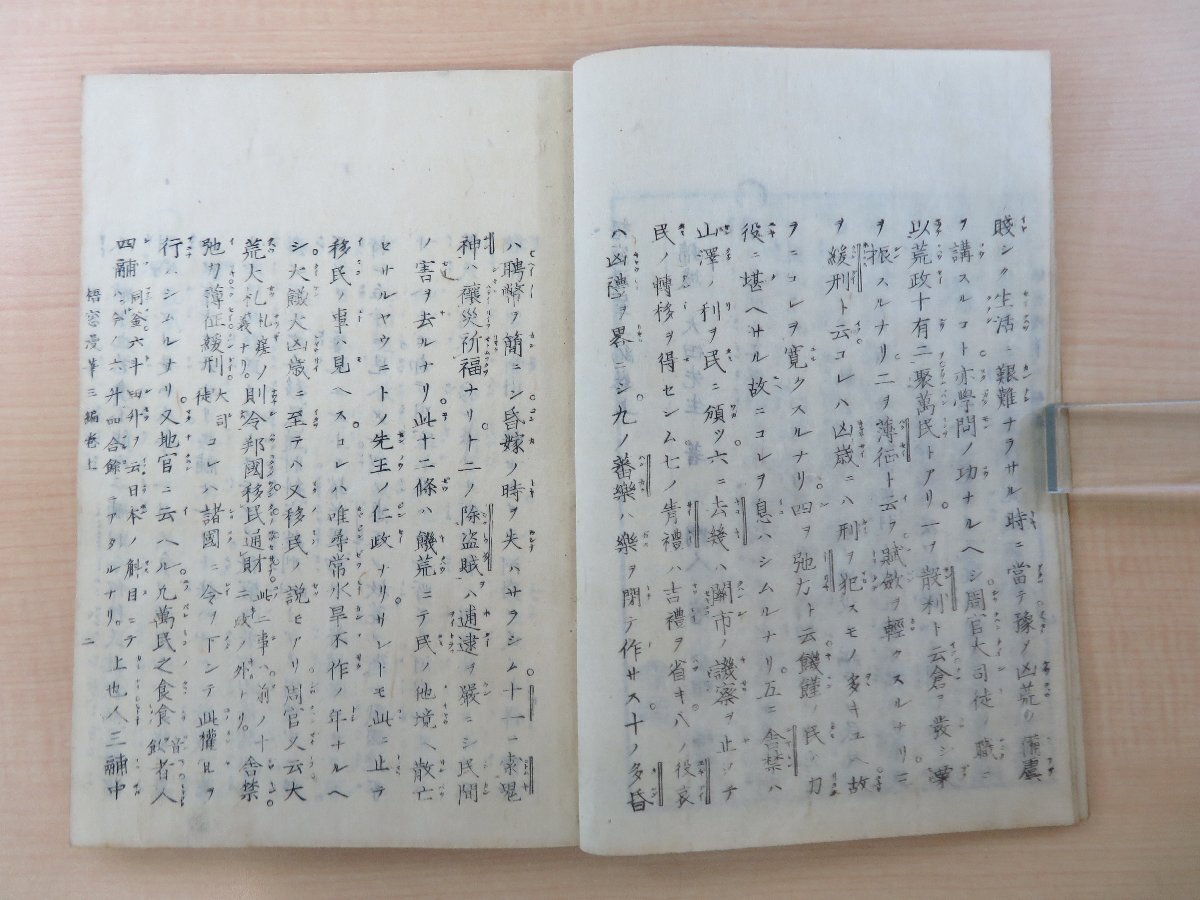 賤シク生活ニ艱難ナラサル時ニ當テ豫メ凶荒ノ備慮
ヲ講スルコト亦學問ノ功ナルヘシ周官大司徒ノ職ニ
以荒政十有二聚萬民トアリ一ヲ散利ト云倉ニ發シ
ヲ振スルナリ二ヲ薄征ト云フ賦斂ヲ輕クスルナリ三
ヲ緩刑ト云コレハ凶歳ニハ刑ヲ犯スモノ多キユヘ故
ヲニコレヲ寛クスルナリ四ヲ弛力ト云饑饉ノ民ノ力
役ニ堪ヘサル故ニコレヲ息ハシムルナリ五ニ舎禁ハ
山澤ノ利ヲ民ニ頒ツ六ニ去幾ハ關市ノ譏察ヲ止メテ
民ノ轉移ヲ得セシム七ノ眚禮ハ吉禮ヲ省キ八ノ殺哀
ハ凶禮ヲ畧ニシ九ノ蕃樂ハ樂ヲ閉テ作サス十ノ多昏
ハ聘幣ヲ簡ニシ昏嫁ノ時ヲ失ハサラシム十一索鬼
神ハ禳災祈福ナリ十二ノ除盗賊ハ逋逮ヲ嚴ニシ民間
ノ害ヲ去ルナリ此十二條ハ饑荒ニテ民ノ他境ヘ散亡
セサルヤウニトノ先王ノ仁政ナリサレトモ此ニ止テ
移民ノ事ハ見ヘスコレハ唯尋常水旱不作ノ年ナルヘ
シ大饑大凶歳ニ至テハ又移民ノ説モアリ周官又云大
荒大札 則令邦國移民通財 舎禁
弛力薄征緩刑 大司徒 コレハ諸國ニ令ヲ下シテ此權且ヲ
行ハシムルナリ又地官ニ云ヘル凡萬民之食食 者人
四鬴 六斗四升ヲ云日本ノ斛目ニテハ今ノ六升四合餘ニアタルナリ 上也人三鬴中
梧窓漫筆三編巻上 二